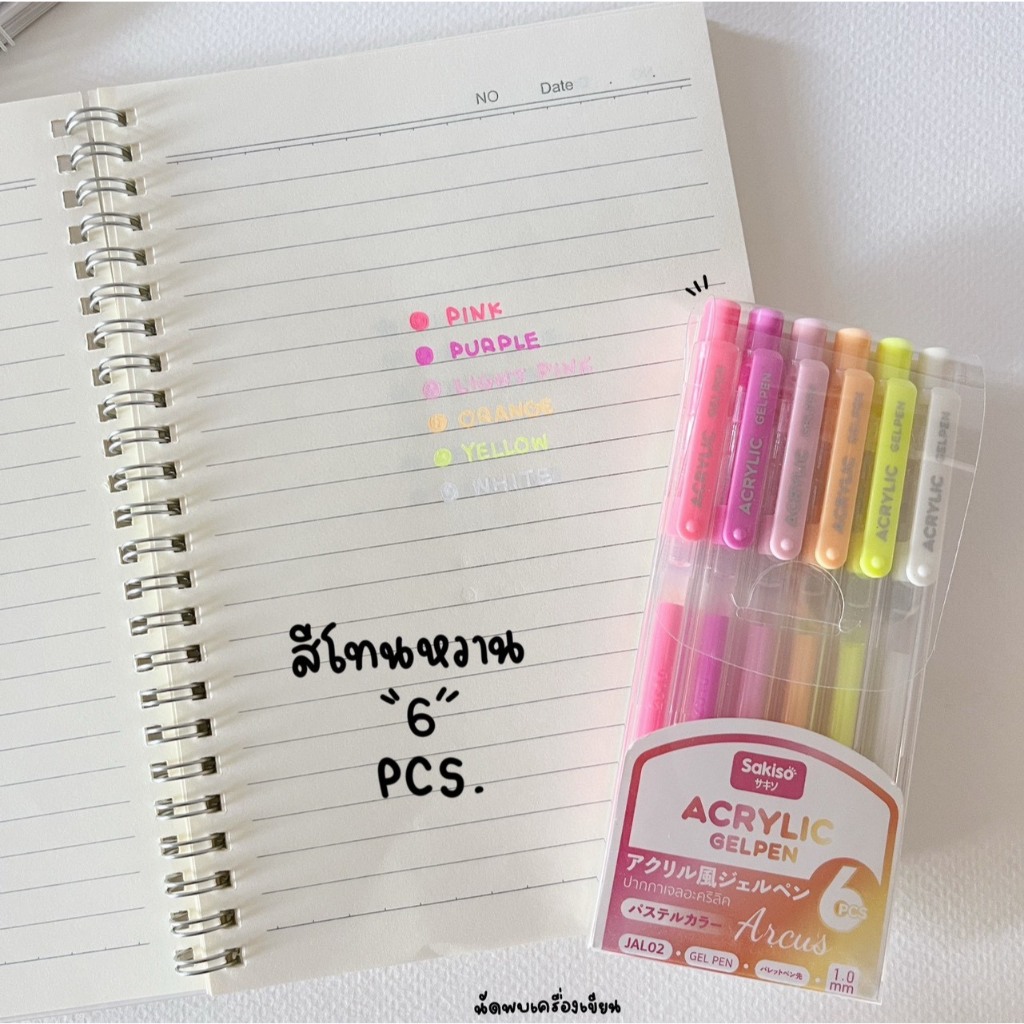 NO Date
PINK
PURPLE
LIGHT PINK
ORANGE
YELLOW
WHITE
สีโทนหวาน
"6"
PCS.
ACRYLIC GELPEN
ACRYLIC GELPEN
ACRYLIC GELPEN
ACRYLIC GELPEN
ACRYLIC GELPEN
ACRYLIC GELPEN
Sakiso
サキソ
ACRYLIC
GELPEN
アクリル風ジェルペン
ปากกาเจลอะคริลิค
6 PCS
パステルカラー
Arcus
JAL02 • GEL PEN • パレットペン先 • 1.0 mm
นัดพบเครื่องเขียน